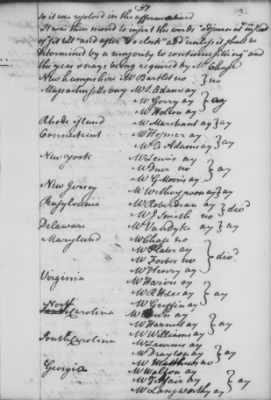 47
so it was resolved in the affirmative
It was then moved to insert the words "adjourn at
of six" and after "o'clock" and unless it shall be
determined by a majority to continue sitting" and
the yeas & nays being required by Mr Chase
New hampshire Mr Bartlet no } no
Massachusetts bay Mr S. Adams ay
Mr Gerry ay } ay
Mr Holton ay
Rhode island Mr Marchant ay } ay
Connecticut Mr Hosmer ay
Mr A. Adams ay } ay
New York Mr Lewis ay
Mr Duer no } ay
Mr G. Morris ay
New Jersey Mr Witherspoon ay } ay
Pensylvania Mr Roberdeau ay
Mr J. Smith no } divd
Delaware Mr Van Dyke ay } ay
Maryland Mr Chase no
Mr Plater ay
Mr Forbes no } divd
Mr Henry ay
Virginia Mr Harvie ay
Mr Griffin ay } ay
North Carolina Mr Penn ay
Mr Harnett ay } ay
Mr Williams ay
South Carolina Mr Laurens ay
Mr Drayton ay } ay
Mr Matthews no
Georgia Mr Walton ay
Mr Telfair ay } ay
Mr Langworthy ay